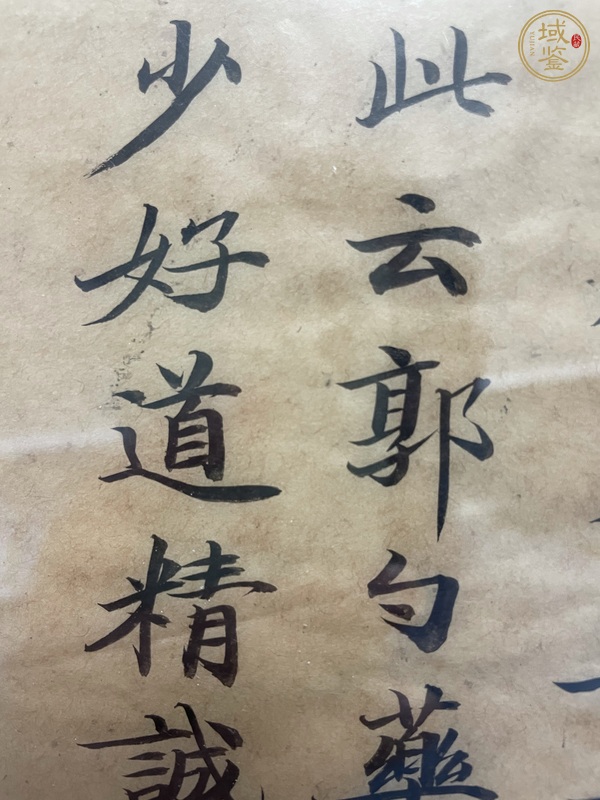 此云郭勺藥
少好道精誠
域鉴